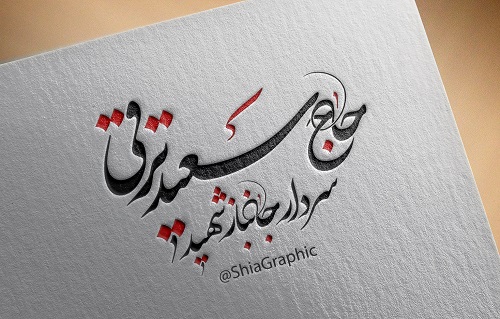 حاج سعید ترقی
سردار جانباز شهید
@ShiaGraphic